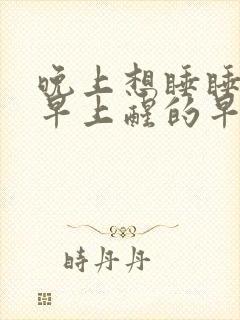 晚上想睡睡
早上醒的早
時丹丹